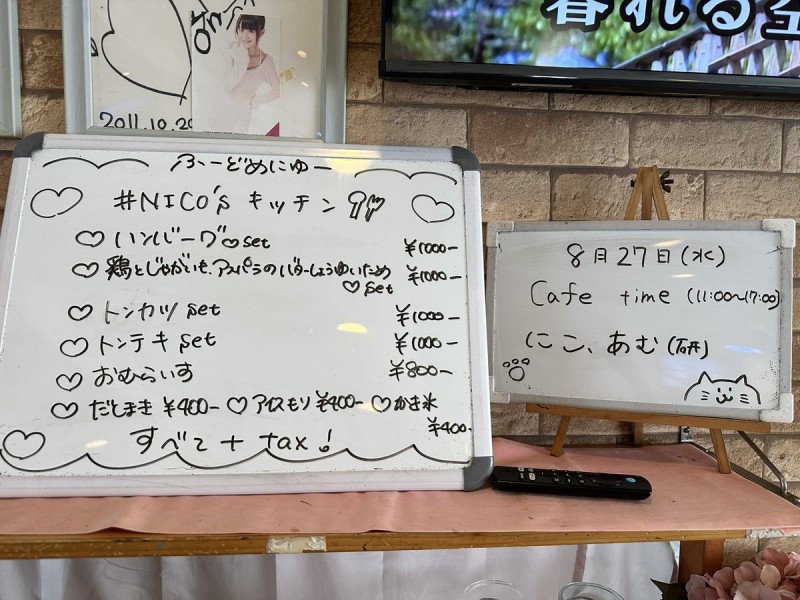 暮れる空
2011.10.20
ふーどめにゅー
#NICO's キッチン
♡ ハンバーグ♡set ¥1000-
♡ 鶏とじゃがいも、アスパラのバターしょうゆいため ¥1000-
♡set
♡ トンカツ set ¥1000-
♡ トンテキ set ¥1000-
♡ おむらいす ¥800-
♡ だしまき ¥400- ♡ アイスモリ ¥400- ♡ かき氷
¥400-
すべて + tax!
8月27日(水)
Cafe time (11:00~17:00)
にこ、あむ(研)